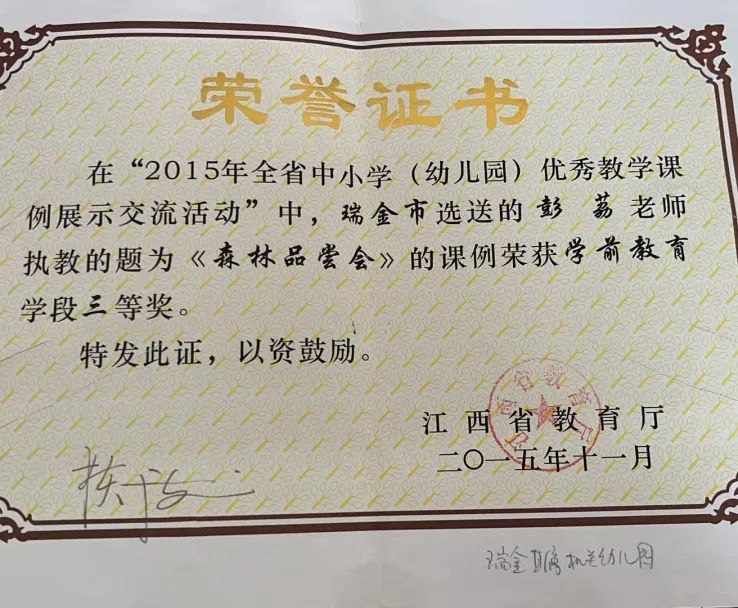 荣誉证书
在“2015年全省中小学（幼儿园）优秀教学课
例展示交流活动”中，瑞金市选送的彭 荔 老师
执教的题为《森林品尝会》的课例荣获学前教育
学段三等奖。
特发此证，以资鼓励。
江西省教育厅
江西省教育厅
二〇一五年十一月